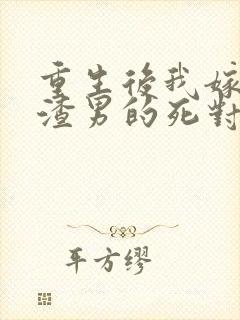 重生後我嫁
渣男的死對
平方缪